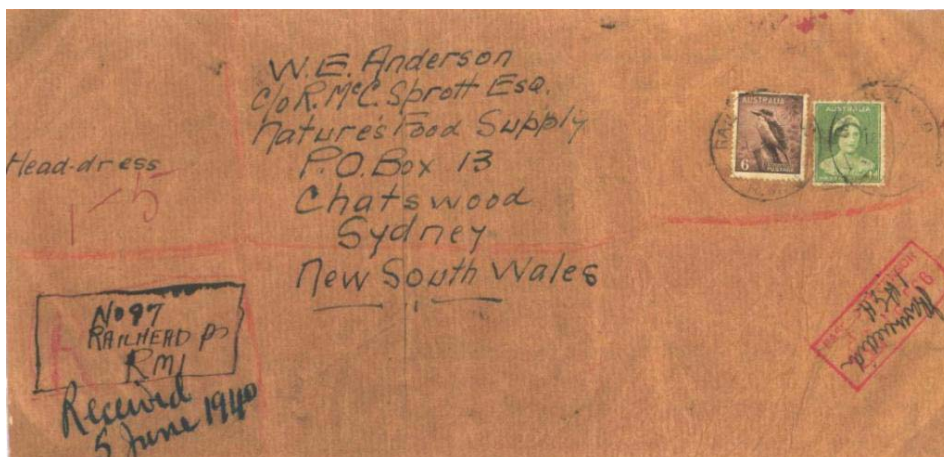 W. E. Anderson
c/o R. McC. Sprott Esq.
Nature's Food Supply
P.O. Box 13
Chatswood
Sydney
New South Wales
Head-dress
1-5
No 97
RAILHEAD PO
RMI
R
Received
5 June 1940
AUSTRALIA
6
POSTAGE
AUSTRALIA